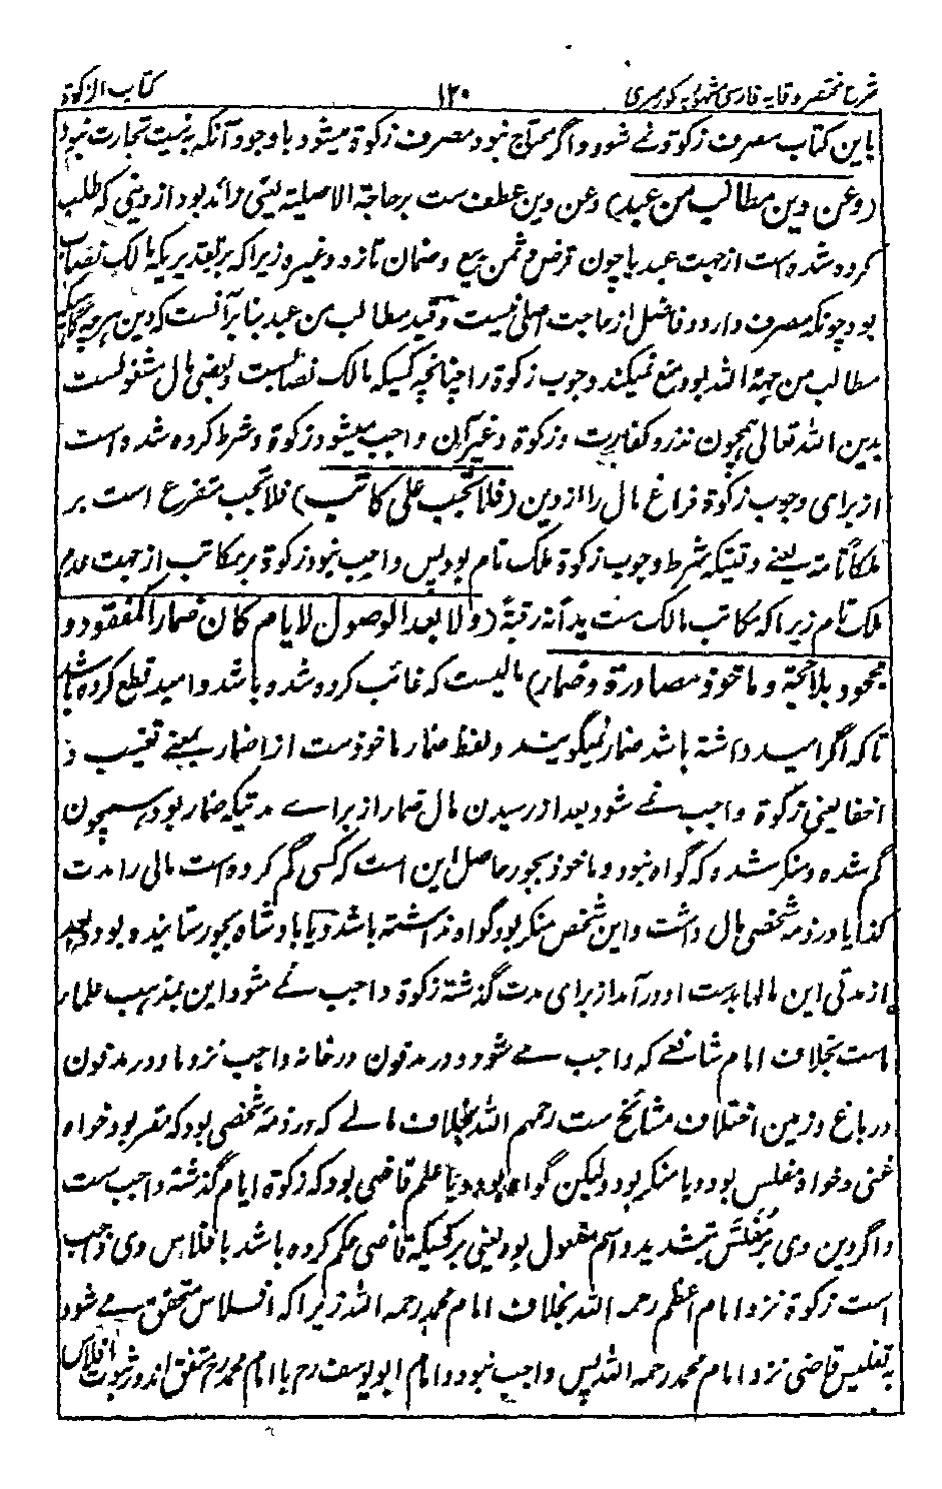 شرح مختصر وقایہ فارسی مشہور بہ کور میری ۱۲۰ کتاب الزکوة
باین کتاب مصرف زکوة نے شود و اگر محتاج نبود مصرف زکوة میشود با وجود آنکہ بہ نیت تجارت نبود
(وعن دین مطالب من عبد) وعن دین عطف ست بر حاجة الاصلیة یعنی زائد بود از دینی کہ طلب
کرده شده است از جہت عبد با چون قرض و ثمن بیع و ضمان تازه و غیره زیرا کہ بر تقدیریکہ مالک نصاب
بود چونکہ مصرف دارد و فاضل از حاجت اصلی نیست و قید مطالب من عبد بنا بر آنست کہ دین ہرچہ گاہیکہ
مطالب من جہة الله بود منع نمیکند وجوب زکوة را چنانچہ کسیکہ مالک نصابست و بعضی مال مشغولست
بدین الله تعالی ہمچون نذر و کفارت و زکوة و غیر آن واجب میشود زکوة و شرط کرده شده است
از برای وجوب زکوة فراغ مال را از دین (فلا تجب علی کاتب) فلا تجب متفرع است بر
ملکا تامة یعنے وقتیکہ شرط وجوب زکوة ملک تام بود پس واجب نبود زکوة بر مکاتب از جہت عدم
ملک تام زیرا کہ مکاتب مالک ست یداً نہ رقبةً (ولا بعد الوصول لایام کان ضمارا کمفقود و
مجحود بلا حجة و ماخوذ مصادرة و ضمار) مالیست کہ غائب کرده شده باشد و امید قطع کرده باشد
تا کہ اگر امید داشتہ باشد ضمار نمیگویند و لفظ ضمار ماخوذست از اضمار بمعنے تغییب و
اخفا یعنی زکوة واجب نے شود بعد از رسیدن مال ضمار از براے مدتیکہ ضمار بود ہمچون
گم شده و منکر شده کہ گواه نبود و ماخوذ بجور حاصل این است کہ کسی گم کرده است مالی را مدت
کذا یا در ذمہ شخصی مال داشت و این شخص منکر بود گواه نداشتہ باشد و یا بادشاه بجور ستانیده بود و بعد
از مدتی این مالہا بدست او در آمد از برای مدت گذشتہ زکوة واجب نے شود این بمذہب علماء
است بخلاف امام شافعے کہ واجب مے شود و در مدفون در خانہ واجب نزد ما و در مدفون
در باغ و زمین اختلاف مشائخ ست رحمہم الله بخلاف مالے کہ در ذمہ شخصی بود کہ مقر بود خواه
غنی و خواه مفلس بود و یا منکر بود ولیکن گواه بود و یا علم قاضی بود کہ زکوة ایام گذشتہ واجب ست
و اگر دین وی بر مُفَلَّس بتشدید و اسم مفعول بود یعنی بر کسیکہ قاضی حکم کرده باشد با فلاس وی واجب
است زکوة نزد امام اعظم رحمہ الله بخلاف امام محمد رحمہ الله زیرا کہ افلاس متحقق مے شود
بہ تفلیس قاضی نزد امام محمد رحمہ الله پس واجب نبود و امام ابو یوسف رح با امام محمد رح متفق اند در ثبوت افلاس